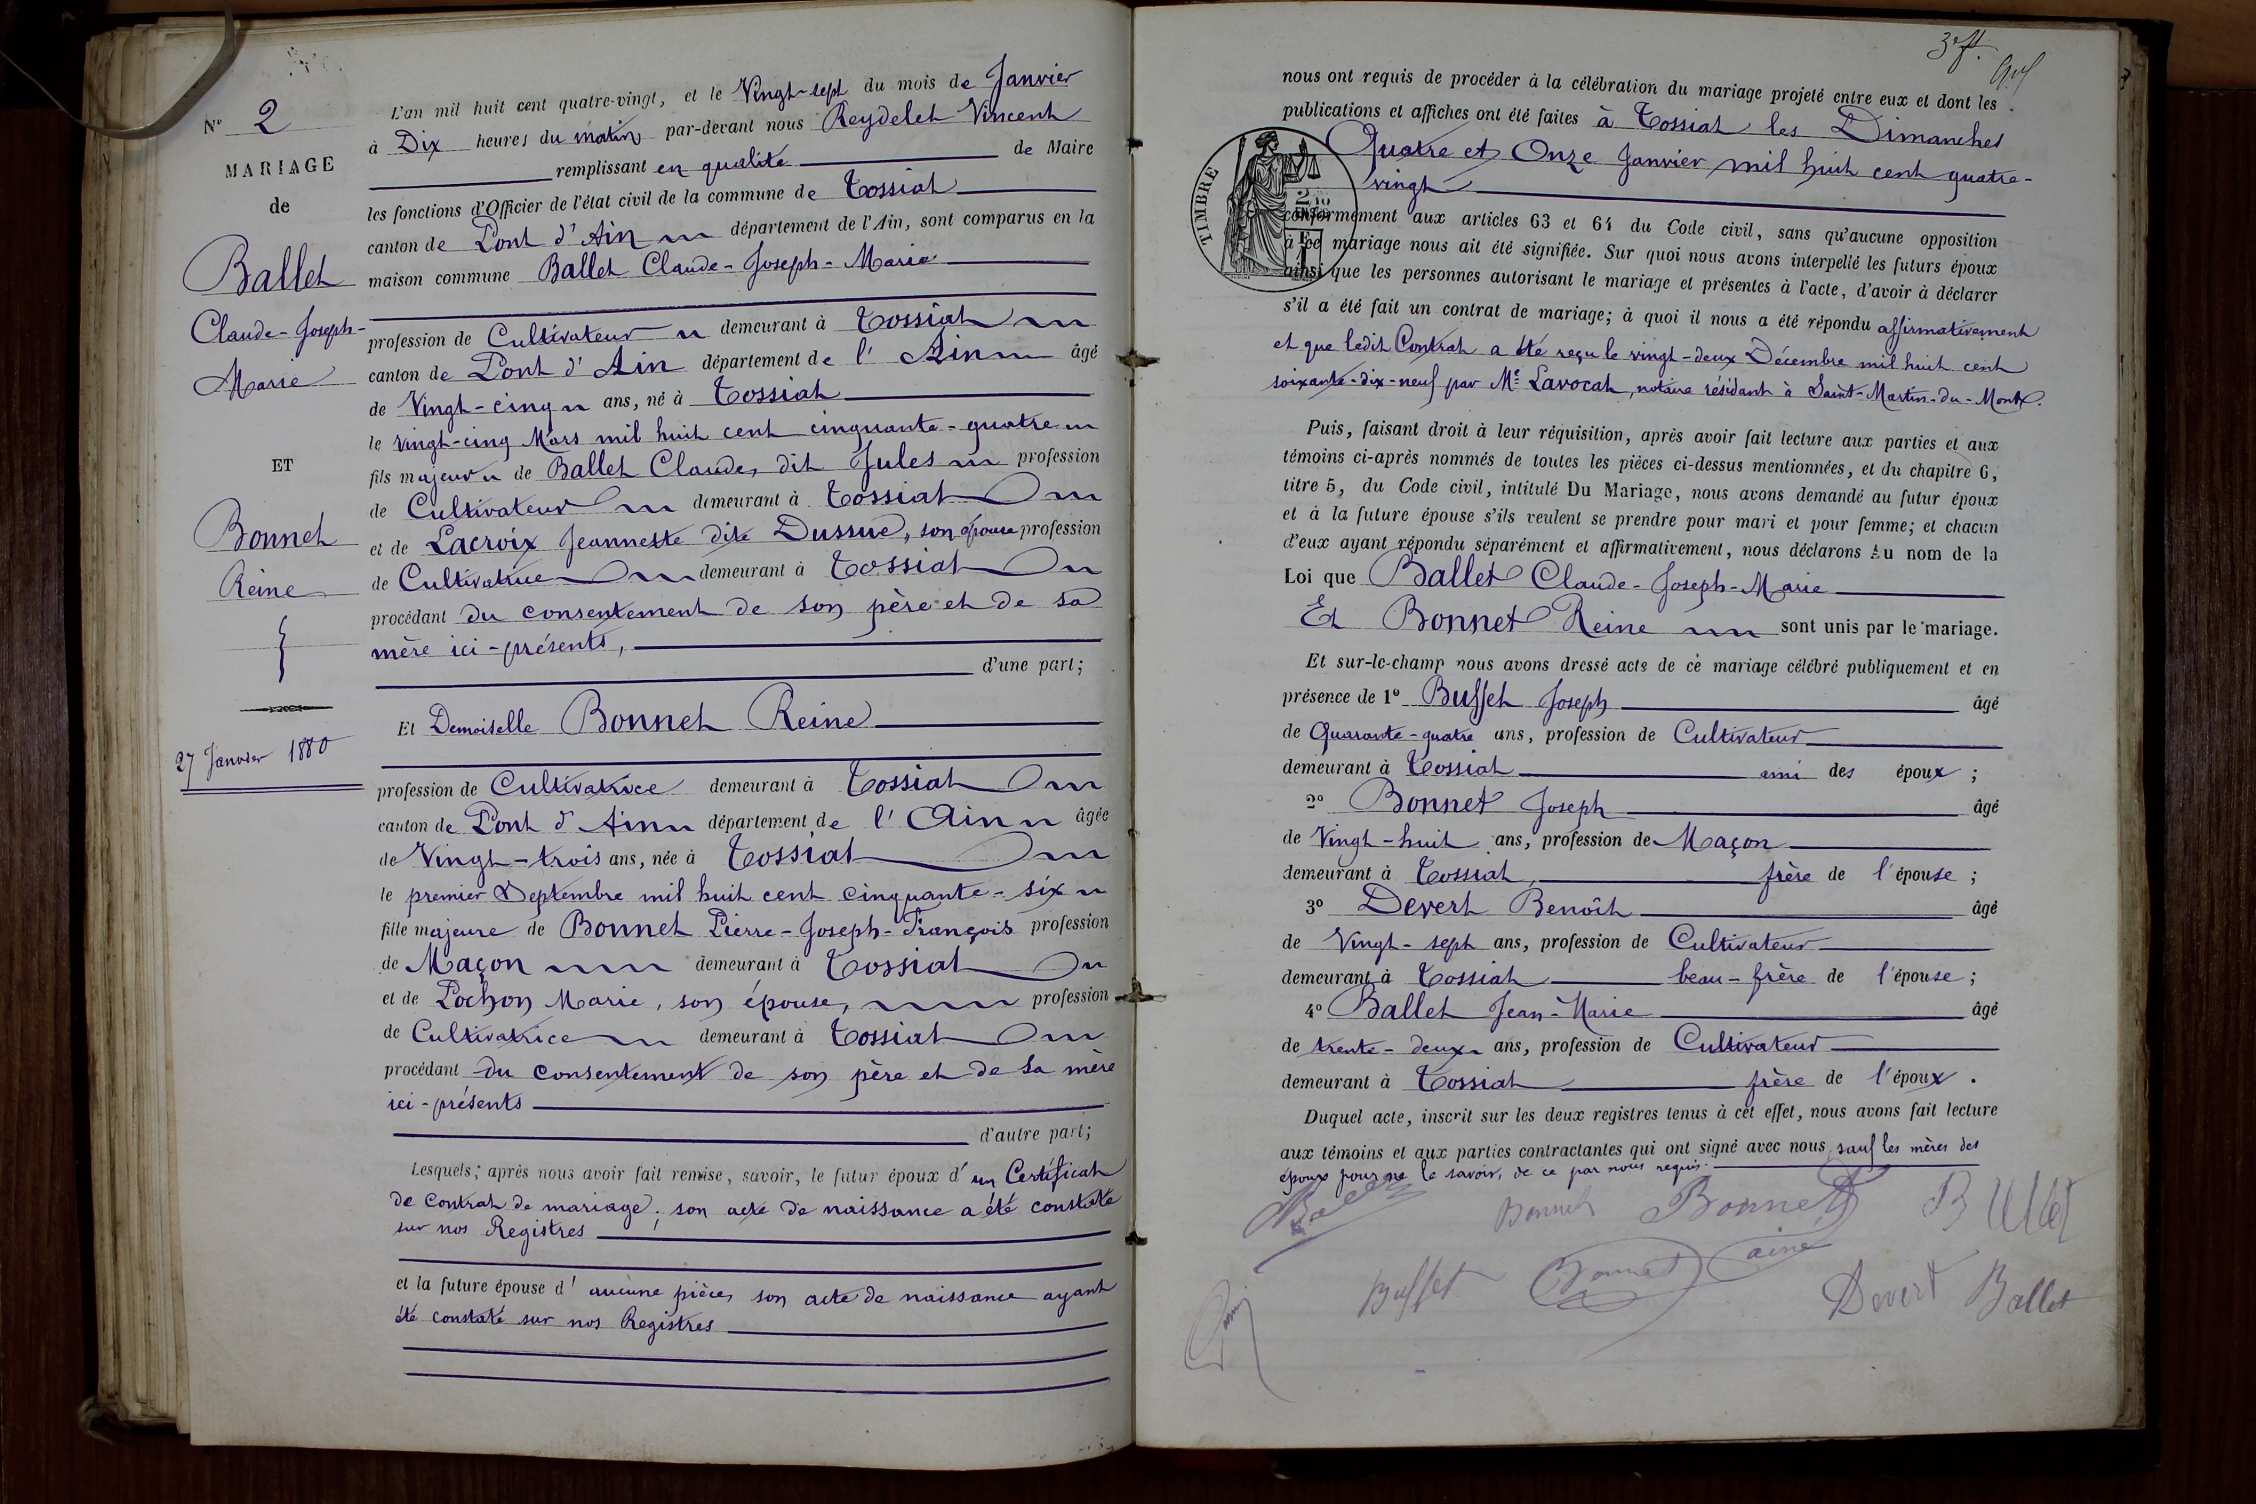 N° 2
MARIAGE
de
Ballet
Claude-Joseph-
Marie
ET
Bonnet
Reine
27 Janvier 1880
L'an mil huit cent quatre-vingt, et le Vingt-sept du mois de Janvier
à Dix heures du matin par-devant nous Reydelet Vincent
remplissant en qualité de Maire
les fonctions d'Officier de l'état civil de la commune de Tossiat
canton de Pont d'Ain département de l'Ain, sont comparus en la
maison commune Ballet Claude-Joseph-Marie
profession de Cultivateur demeurant à Tossiat
canton de Pont d'Ain département de l'Ain âgé
de Vingt-cinq ans, né à Tossiat
le vingt-cinq Mars mil huit cent cinquante-quatre
fils majeur de Ballet Claude, dit Jules profession
de Cultivateur demeurant à Tossiat
et de Lacroix Jeannette dite Dussuc, son épouse profession
de Cultivatrice demeurant à Tossiat
procédant du consentement de son père et de sa
mère ici-présents,
d'une part;
Et Demoiselle Bonnet Reine
profession de Cultivatrice demeurant à Tossiat
canton de Pont d'Ain département de l'Ain âgée
de Vingt-trois ans, née à Tossiat
le premier Septembre mil huit cent cinquante-six
fille majeure de Bonnet Pierre-Joseph-François profession
de Maçon demeurant à Tossiat
et de Pochon Marie, son épouse, profession
de Cultivatrice demeurant à Tossiat
procédant du consentement de son père et de sa mère
ici-présents
d'autre part;
Lesquels; après nous avoir fait remise, savoir, le futur époux d'un Certificat
de Contrat de mariage; son acte de naissance a été constaté
sur nos Registres
et la future épouse d'aucune pièce, son acte de naissance ayant
été constaté sur nos Registres
nous ont requis de procéder à la célébration du mariage projeté entre eux et dont les
publications et affiches ont été faites à Tossiat les Dimanches
Quatre et Onze Janvier mil huit cent quatre-
vingt
TIMBRE
conformément aux articles 63 et 64 du Code civil, sans qu'aucune opposition
à ce mariage nous ait été signifiée. Sur quoi nous avons interpellé les futurs époux
ainsi que les personnes autorisant le mariage et présentes à l'acte, d'avoir à déclarer
s'il a été fait un contrat de mariage; à quoi il nous a été répondu affirmativement
et que ledit Contrat a été reçu le vingt-deux Décembre mil huit cent
soixante-dix-neuf par Me Lavocat, notaire résidant à Saint-Martin-du-Mont.
Puis, faisant droit à leur réquisition, après avoir fait lecture aux parties et aux
témoins ci-après nommés de toutes les pièces ci-dessus mentionnées, et du chapitre 6,
titre 5, du Code civil, intitulé Du Mariage, nous avons demandé au futur époux
et à la future épouse s'ils veulent se prendre pour mari et pour femme; et chacun
d'eux ayant répondu séparément et affirmativement, nous déclarons Au nom de la
Loi que Ballet Claude-Joseph-Marie
Et Bonnet Reine sont unis par le mariage.
Et sur-le-champ nous avons dressé acte de ce mariage célébré publiquement et en
présence de 1° Buffet Joseph âgé
de Quarante-quatre ans, profession de Cultivateur
demeurant à Tossiat ami des époux;
2° Bonnet Joseph âgé
de Vingt-huit ans, profession de Maçon
demeurant à Tossiat, frère de l'épouse;
3° Devert Benoît âgé
de Vingt-sept ans, profession de Cultivateur
demeurant à Tossiat beau-frère de l'épouse;
4° Ballet Jean-Marie âgé
de trente-deux ans, profession de Cultivateur
demeurant à Tossiat frère de l'époux.
Duquel acte, inscrit sur les deux registres tenus à cet effet, nous avons fait lecture
aux témoins et aux parties contractantes qui ont signé avec nous, sauf les mères des
époux pour ne le savoir, de ce par nous requis.
Ballet Bonnet Bonnet Ballet
Buffet Bonnet ainé Devert Ballet